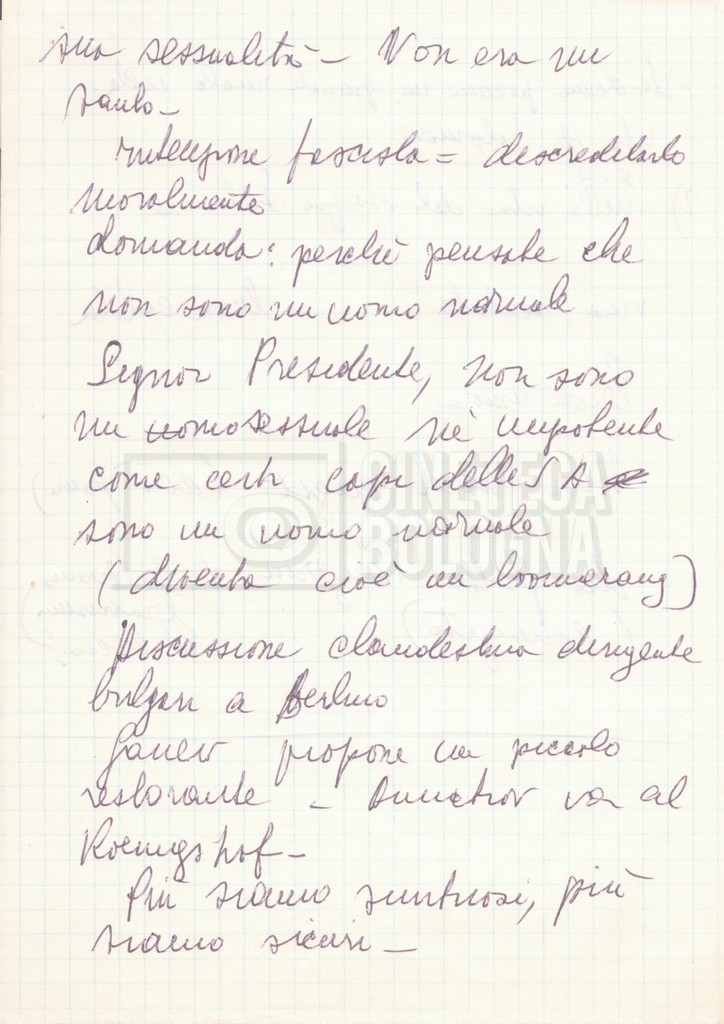 sua sessualità - Non era un
santo -
intenzione fascista = descreditarlo
moralmente
domanda: perché pensate che
non sono un uomo normale
Signor Presidente, non sono
un omosessuale né impotente
come certi capi delle SA
sono un uomo normale
(diventa cioè un boomerang)
Discussione clandestina dirigente
bulgari a Berlino
Ganev propone un piccolo
restorante - Dimitrov va al
Koenigshof -
Più siamo suntuosi, più
siamo sicuri -
CINETECA
BOLOGNA